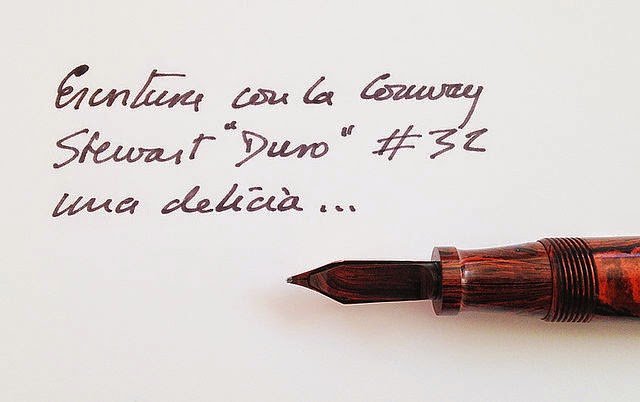 Escritura con la Conway
Stewart "Duro" #32
una delicia...